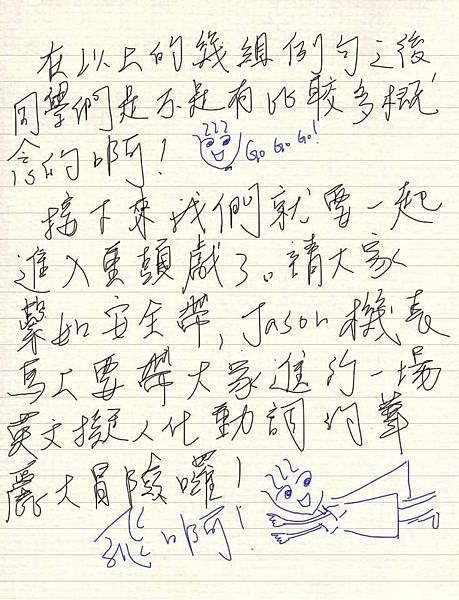 在以上的幾組例句之後
同學們是不是有比較多概
念的啊!
Go Go Go!
接下來我們就要一起
進入重頭戲了。請大家
繫好安全帶, Jason 機長
馬上要帶大家進行一場
英文擬人化動詞的華
麗大冒險囉!
飛啊!